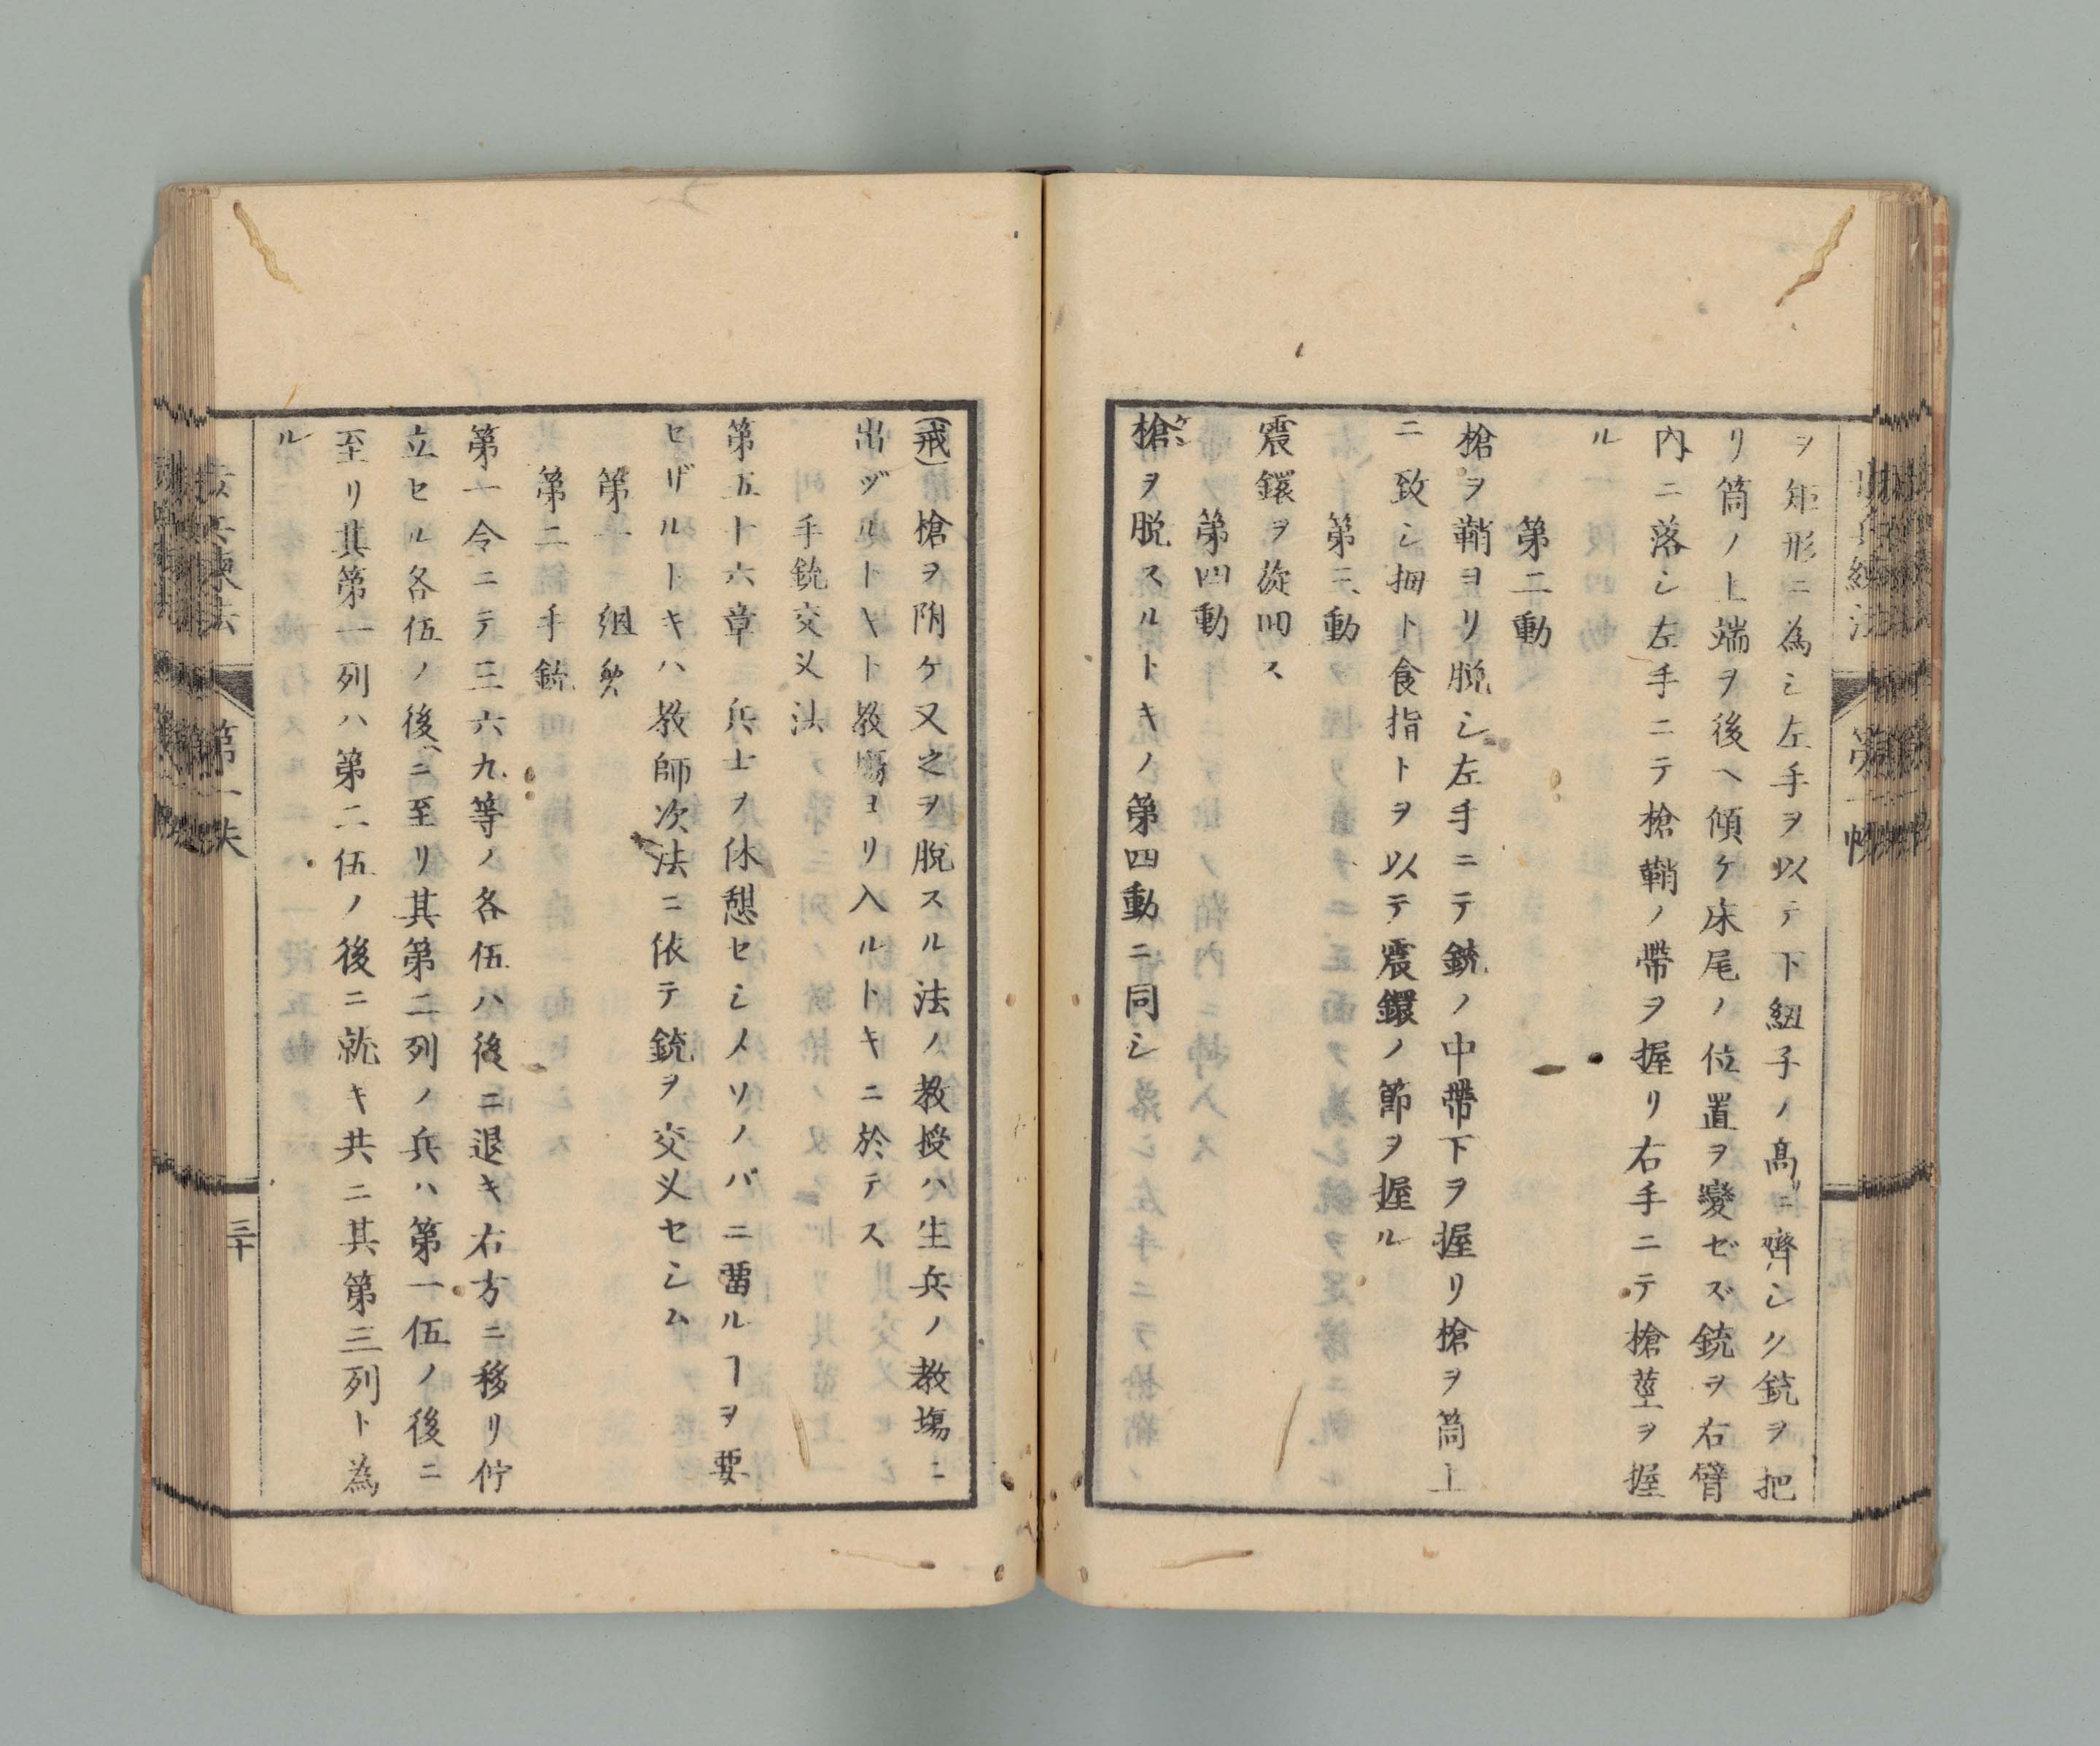 ヲ矩形ニ為シ左手ヲ以テ下紐子ノ高ニ齊シク銃ヲ把
リ筒ノ上端ヲ後ヘ傾ケ床尾ノ位置ヲ變ゼズ銃ヲ右臂
内ニ落シ左手ニテ槍鞘ノ帶ヲ握リ右手ニテ槍莖ヲ握
ル
第二動
槍ヲ鞘ヨリ脱シ左手ニテ銃ノ中帶下ヲ握リ槍ヲ筒上
ニ致シ拇ト食指トヲ以テ震鐶ノ節ヲ握ル
第三動
震鐶ヲ旋回ス
第四動
槍ヲ脱スルトキノ第四動ニ同シ
(戒)槍ヲ附ケ又之ヲ脱スル法ノ教授ハ生兵ノ教場ニ
出ヅルトキト教場ヨリ入ルトキニ於テス
手銃交叉法
第五十六章 兵士ヲ休憩セシメソノバニ畱ルヿヲ要
セザルトキハ教師次法ニ依テ銃ヲ交叉セシム
第一 組銃
第二 手銃
第一令ニテ三六九等ノ各伍ハ後ニ退キ右方ニ移リ佇
立セル各伍ノ後ニ至リ其第二列ノ兵ハ第一伍ノ後ニ
至リ其第一列ハ第二伍ノ後ニ就キ共ニ其第三列ト為
ル
第一帙
三十